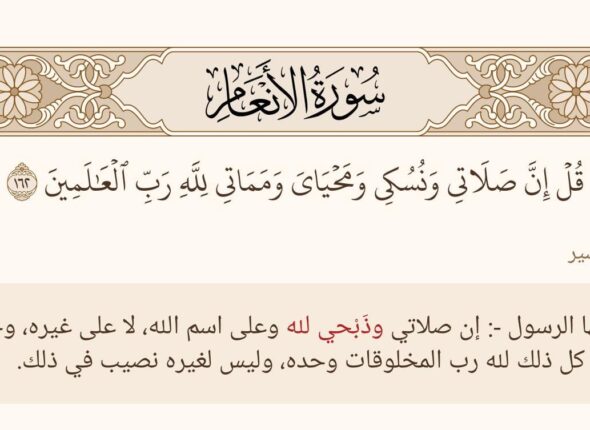 سُورَةُ الأَنْعَامِ
قُلْ إِنَّ صَلَاتِي وَنُسُكِي وَمَحْيَايَ وَمَمَاتِي لِلَّهِ رَبِّ الْعَالَمِينَ ١٦٢
الرسول -: إن صلاتي وذَبْحي لله وعلى اسم الله، لا على غيره،
كل ذلك لله رب المخلوقات وحده، وليس لغيره نصيب في ذلك.